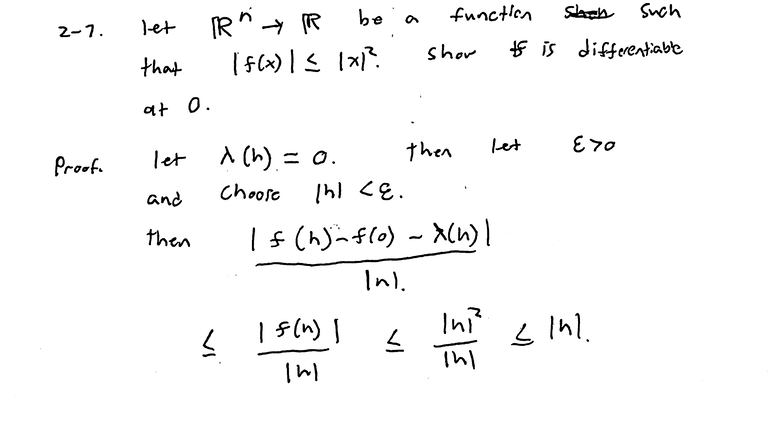 2-7. let ℝⁿ → ℝ be a function such
that |f(x)| ≤ |x|². show f is differentiable
at 0.
Proof. let λ(h) = 0. then let ε>0
and choose |h| < ε.
then |f(h) - f(0) - λ(h)| / |h|.
≤ |f(h)| / |h| ≤ |h|² / |h| ≤ |h|.